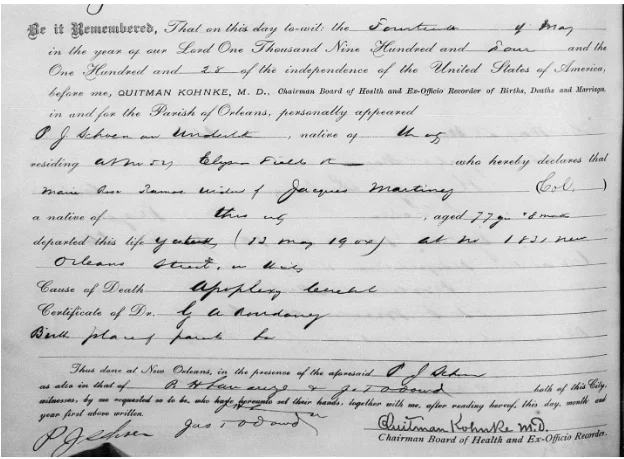 Be it Remembered, That on this day to-wit: the Fourteenth of May
in the year of our Lord One Thousand Nine Hundred and Four and the
One Hundred and 28 of the independence of the United States of America,
before me, QUITMAN KOHNKE, M. D., Chairman Board of Health and Ex-Officio Recorder of Births, Deaths and Marriages,
in and for the Parish of Orleans, personally appeared
P J Schoen an Undertk , native of this city
residing at No 527 Elysian Fields who hereby declares that
Marie Rose Ramos widow of Jacques Martinez (Col. )
a native of this city , aged 77 yrs 8 mos
departed this life yesterday (13 May 1904) at No 1831 New
Orleans Street, in this city
Cause of Death Apoplexy
Certificate of Dr. G A
Birth place of parents La
Thus done at New Orleans, in the presence of the aforesaid P J Schoen
as also in that of & Jas T O'Dowd both of this City,
witnesses, by me requested so to be, who have hereunto set their hands, together with me, after reading hereof, this day, month and
year first above written.
P J Schoen Jas T O'Dowd Quitman Kohnke M.D.
Chairman Board of Health and Ex-Officio Recorder.